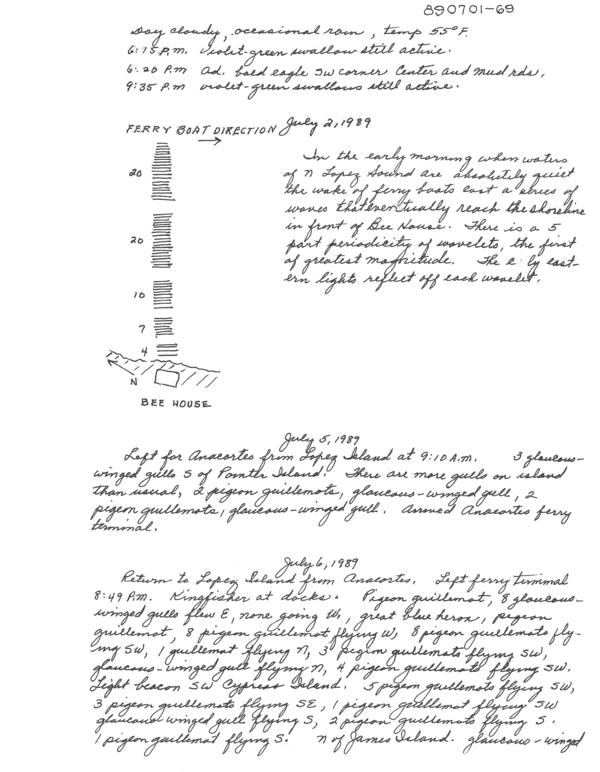 890701-69
Day cloudy, occasional rain, temp 55°F.
6:15 P.m. violet-green swallow still active.
6:20 P.m ad. bald eagle SW corner Center and Mud rds.
9:35 P.m violet-green swallows still active.
July 2, 1989
FERRY BOAT DIRECTION
In the early morning when waters
of N Lopez Sound are absolutely quiet
the wake of ferry boats cast a series of
waves that eventually reach the shoreline
in front of Bee House. There is a 5
part periodicity of wavelets, the first
of greatest magnitude. The early east-
ern lights reflect off each wavelet.
20
20
10
7
4
N
BEE HOUSE
July 5, 1989
Left for Anacortes from Lopez Island at 9:10 A.m. 3 glaucous-
winged gulls S of Pointer Island. There are more gulls on island
than usual, 2 pigeon guillemots, glaucous-winged gull, 2
pigeon guillemots, glaucous-winged gull. Arrived Anacortes ferry
terminal.
July 6, 1989
Return to Lopez Island from Anacortes. Left ferry terminal
8:49 P.m. Kingfisher at docks. Pigeon guillemot, 8 glaucous-
winged gulls flew E, none going W, great blue heron, pigeon
guillemot, 8 pigeon guillemot flying W, 8 pigeon guillemots fly-
ing SW, 1 guillemot flying N, 3 pigeon guillemots flying SW,
glaucous-winged gull flying N, 4 pigeon guillemots flying SW.
Light beacon SW Cypress Island. 5 pigeon guillemots flying SW,
3 pigeon guillemots flying SE, 1 pigeon guillemot flying SW
glaucous-winged gull flying S, 2 pigeon guillemots flying S.
1 pigeon guillemot flying S. N of James Island. glaucous-winged